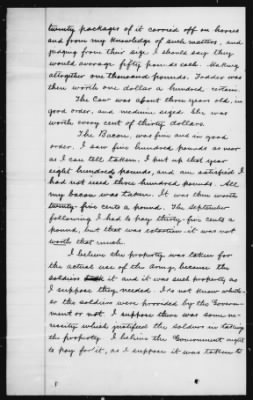 twenty packages of it carried off on horses
and from my knowledge of such matters, and
judging from their size I should say they
would average fifty pounds each. Making
altogether one thousand pounds. Fodder was
then worth one dollar a hundred certain.
The Cow was about three years old, in
good order, and medium sized. She was
worth every cent of thirty dollars.
The Bacon, was fine and in good
order. I saw five hundred pounds as near
as I can tell taken. I put up that year
eight hundred pounds, and am satisfied I
had not used three hundred pounds. All
my bacon was taken. It was then worth
twenty five cents a pound. The September
following I had to pay thirty-five cents a
pound, but that was extortion it was not
worth that much.
I believe the property was taken for
the actual use of the army, because the
soldiers took it and it was such property as
I suppose they needed. I do not know wheth-
er the soldiers were provided by the Govern-
ment or not. I suppose there was some ne-
cessity which justified the soldiers in taking
the property. I believe the Government ought
to pay for it, as I suppose it was taken to